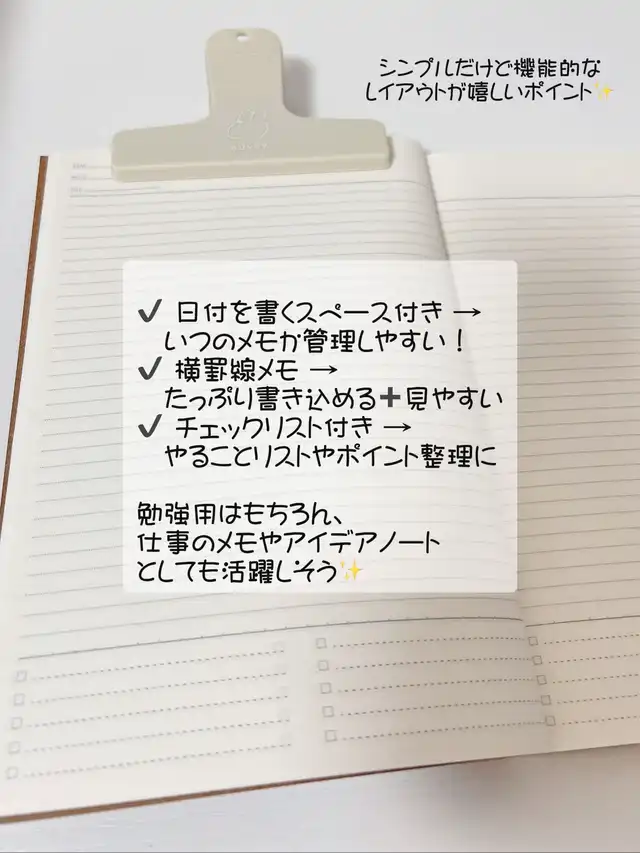 シンプルだけど機能的な
レイアウトが嬉しいポイント✨
✔ 日付を書くスペース付き →
いつのメモか管理しやすい！
✔ 横罫線メモ →
たっぷり書き込める➕見やすい
✔ チェックリスト付き →
やることリストやポイント整理に
勉強用はもちろん、
仕事のメモやアイデアノート
としても活躍しそう✨